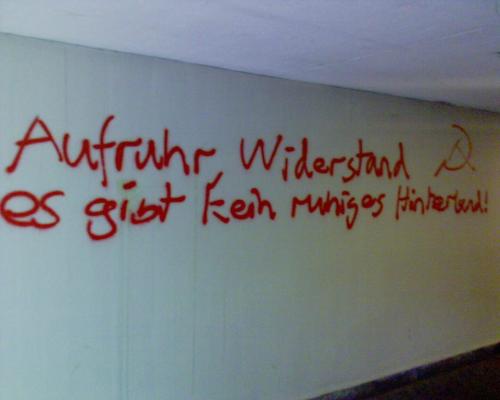 Aufruhr, Widerstand ☭
es gibt kein ruhiges Hinterland!